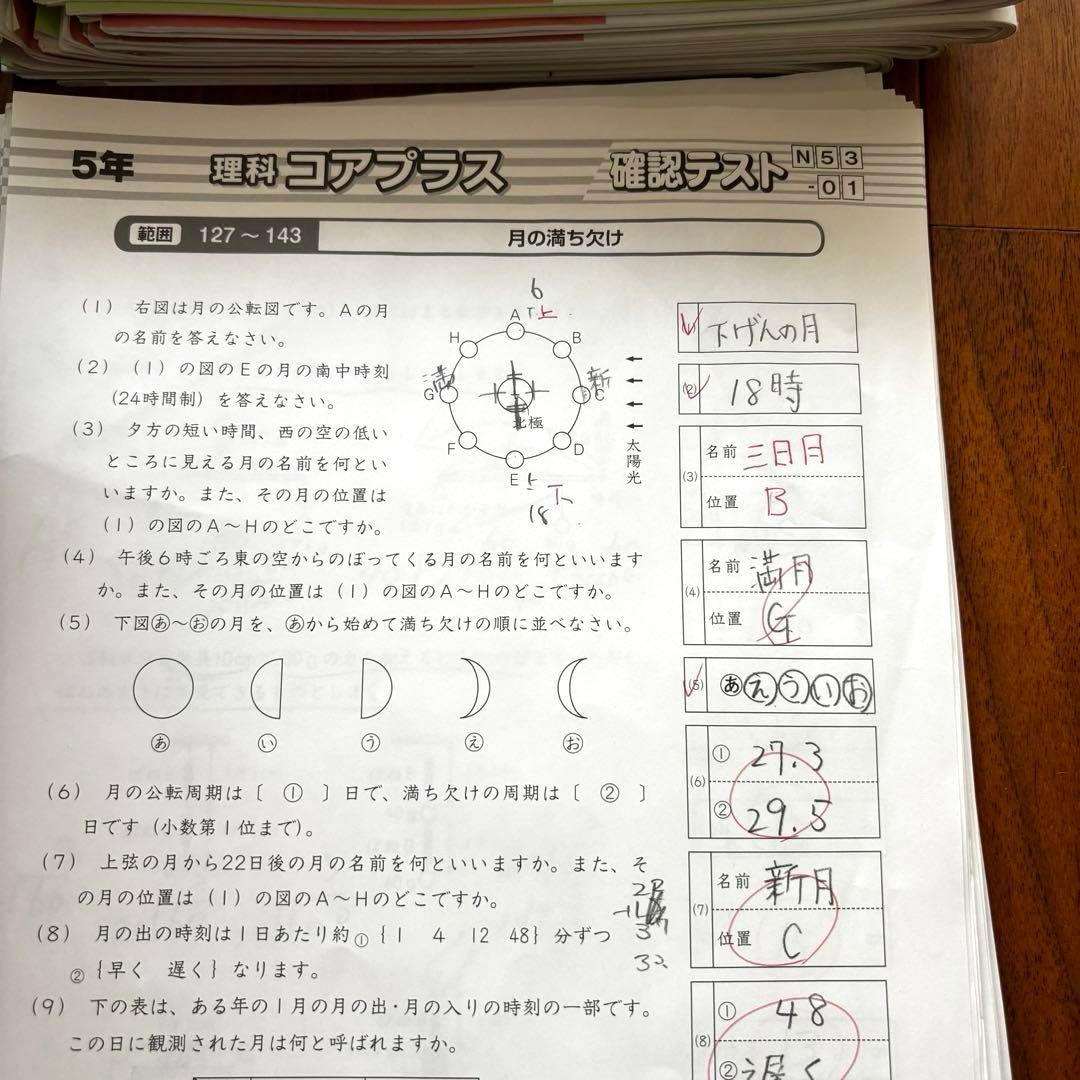 5年 理科 コアプラス 確認テスト N53-01
範囲 127～143 月の満ち欠け
(1) 右図は月の公転図です。Aの月
の名前を答えなさい。
(2) (1)の図のEの月の南中時刻
(24時間制)を答えなさい。
(3) 夕方の短い時間、西の空の低い
ところに見える月の名前を何とい
いますか。また、その月の位置は
(1)の図のA～Hのどこですか。
6
A 上
H B
満 新
G C
北極
F D
E 上 下
18
太陽光
(4) 午後6時ごろ東の空からのぼってくる月の名前を何といいます
か。また、その月の位置は(1)の図のA～Hのどこですか。
(5) 下図あ～おの月を、あから始めて満ち欠けの順に並べなさい。
あ い う え お
(6) 月の公転周期は〔 ① 〕日で、満ち欠けの周期は〔 ② 〕
日です(小数第1位まで)。
(7) 上弦の月から22日後の月の名前を何といいますか。また、そ
の月の位置は(1)の図のA～Hのどこですか。
(8) 月の出の時刻は1日あたり約①{1 4 12 48}分ずつ
②{早く 遅く}なります。
(9) 下の表は、ある年の1月の月の出・月の入りの時刻の一部です。
この日に観測された月は何と呼ばれますか。
(1) 下げんの月
(2) 18時
(3) 名前 三日月
位置 B
(4) 名前 満月
位置 G
(5) あえういお
(6) ① 27.3
② 29.5
(7) 名前 新月
位置 C
(8) ① 48
② 遅く